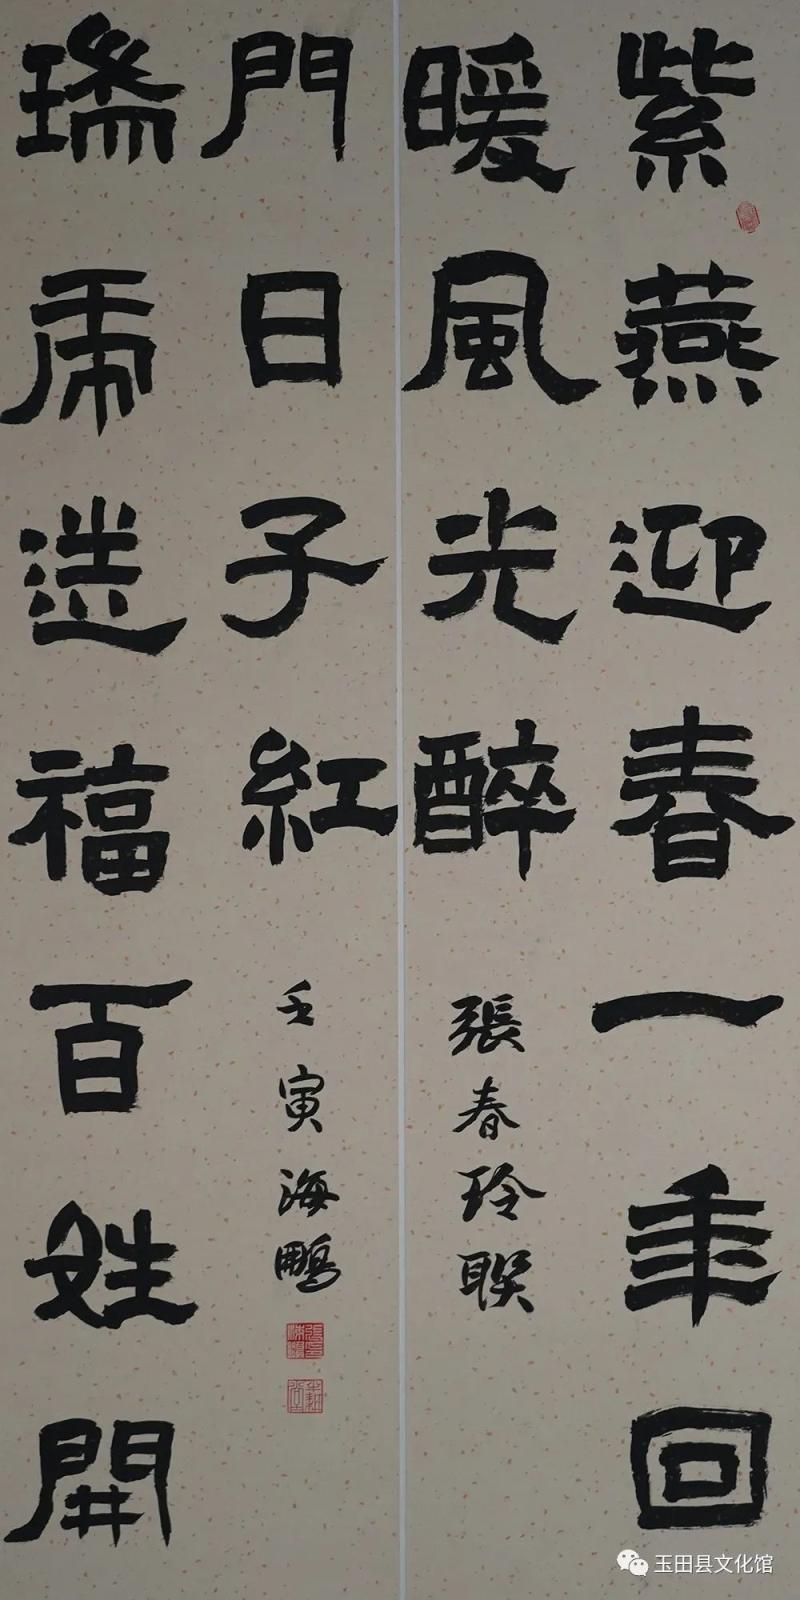 紫燕迎春一年回
暖風光醉
張春玲聯
瑞虎送福百姓開
門日子紅
壬寅海鵬
玉田县文化馆